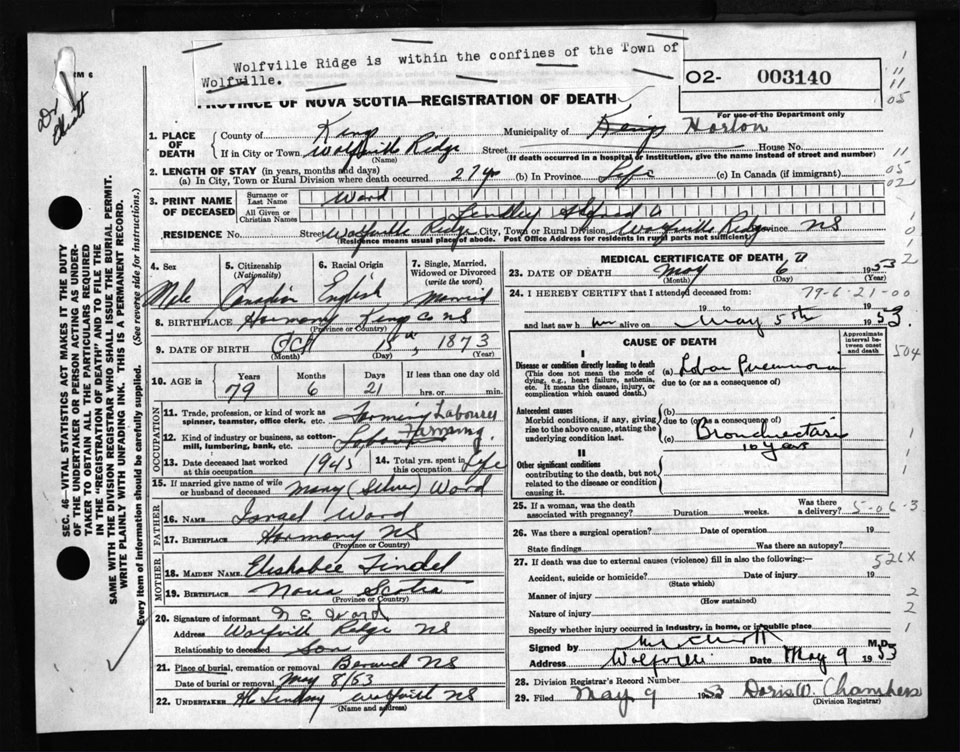 Wolfville Ridge is within the confines of the Town of
Wolfville.
O2- 003140
For use of the Department only
PROVINCE OF NOVA SCOTIA—REGISTRATION OF DEATH
RM 6
Dr Elliott
1. PLACE OF DEATH County of Kings Municipality of Kings Horton
If in City or Town Wolfville Ridge Street House No.
(Name) (If death occurred in a hospital or institution, give the name instead of street and number)
2. LENGTH OF STAY (in years, months and days)
(a) In City, Town or Rural Division where death occurred 27 yr (b) In Province Life (c) In Canada (if immigrant)
3. PRINT NAME OF DECEASED Surname or Last Name Ward
All Given or Christian Names Lindley A
RESIDENCE No. Street Wolfville Ridge City, Town or Rural Division Wolfville Ridge NS
(Residence means usual place of abode. Post Office Address for residents in rural parts not sufficient)
4. Sex 5. Citizenship (Nationality) 6. Racial Origin 7. Single, Married, Widowed or Divorced (write the word)
Male Canadian English Married
8. BIRTHPLACE Harmony Kings Co NS
(Province or Country)
9. DATE OF BIRTH Oct 15th, 1873
(Month) (Day) (Year)
10. AGE in Years Months Days If less than one day old
79 6 21 hrs. or min.
OCCUPATION
11. Trade, profession, or kind of work as spinner, teamster, office clerk, etc. Farming Labourer
12. Kind of industry or business, as cotton-mill, lumbering, bank, etc. Farming.
13. Date deceased last worked at this occupation 1945 14. Total yrs. spent in this occupation Life
15. If married give name of wife or husband of deceased Mary (Silver) Ward
FATHER
16. NAME Israel Ward
17. BIRTHPLACE Harmony NS
(Province or Country)
MOTHER
18. MAIDEN NAME
19. BIRTHPLACE Nova Scotia
(Province or Country)
20. Signature of informant N E Ward
Address Wolfville Ridge NS
Relationship to deceased Son
21. Place of burial, cremation or removal Berwick NS
Date of burial or removal May 8/53
22. UNDERTAKER Lindsay Wolfville NS
(Name and address)
MEDICAL CERTIFICATE OF DEATH
23. DATE OF DEATH May 6 1953
(Month) (Day) (Year)
24. I HEREBY CERTIFY that I attended deceased from: 79-6-21-00
19 to 19
and last saw h im alive on May 5th 1953.
CAUSE OF DEATH
Approximate interval between onset and death
I
Disease or condition directly leading to death (a) Lobar Pneumonia
(This does not mean the mode of dying, e.g., heart failure, asthenia, etc. It means the disease, injury, or complication which caused death.) due to (or as a consequence of)
504
Antecedent causes (b)
Morbid conditions, if any, giving rise to the above cause, stating the underlying condition last. due to (or as a consequence of)
(c) Bronchiectasis
10 years
II
Other significant conditions contributing to the death, but not related to the disease or condition causing it.
25. If a woman, was the death associated with pregnancy? Duration weeks. Was there a delivery? 5-06-3
26. Was there a surgical operation? Date of operation 19
State findings Was there an autopsy?
27. If death was due to external causes (violence) fill in also the following:— 526X
Accident, suicide or homicide? Date of injury 19
(State which)
Manner of injury
(How sustained)
Nature of injury
Specify whether injury occurred in industry, in home, or in public place
Signed by M.D.
Address Wolfville Date May 9 1953
28. Division Registrar's Record Number
29. Filed May 9 1953 Doris W. Chambers
(Division Registrar)
SEC. 46—VITAL STATISTICS ACT MAKES IT THE DUTY
OF THE UNDERTAKER OR PERSON ACTING AS UNDER-
TAKER TO OBTAIN ALL THE PARTICULARS REQUIRED
IN THE "REGISTRATION OF DEATH" AND TO FILE THE
SAME WITH THE DIVISION REGISTRAR WHO SHALL ISSUE THE BURIAL PERMIT.
WRITE PLAINLY WITH UNFADING INK. THIS IS A PERMANENT RECORD.
Every item of information should be carefully supplied. (See reverse side for instructions.)